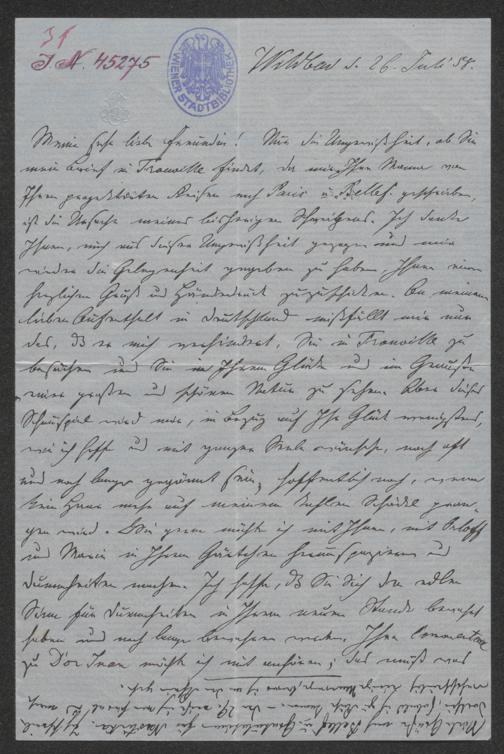 31
I. N. 45275
WIENER STADTBIBLIOTHEK
Wildbad d. 26. Juli 58.
Meine sehr liebe Freundin! Nur die Ungewißheit, ob Sie
mein Brief in Trouville findet, da mir Ihre Mama von
Ihren projektirten Reisen nach Paris u Bellef. geschrieben,
ist die Ursache meines bisherigen Schweigens. Ich danke
Ihnen, mich aus dieser Ungewißheit gezogen und mir
wieder die Gelegenheit gegeben zu haben Ihnen einen
herzlichen Gruß und Händedruck zuzuschicken. An meinem
lieben Aufenthalt in Deutschland mißfällt mir nur
das, daß er mich verhindert, Sie in Trouville zu
besuchen und Sie in Ihrem Glücke und im Genusse
einer großen und schönen Natur zu sehen. Aber dieses
Schauspiel wird mir, in Bezug auf Ihr Glück wenigstens,
wie ich hoffe und mit ganzer Seele wünsche, noch oft
und noch lange gegönnt sein, hoffentlich noch, wenn
kein Haar mehr auf meinem kahlen Schädel
gen wird. Wie gerne möchte ich mit Ihnen, mit
und Maria in Ihrem Gärtchen herumspazieren und
Dummheiten machen. Ich hoffe, daß Sie sich den edlen
Sinn für Dummheiten in Ihrem neuen Stande bewahrt
haben und noch lange bewahren werden. Ihren Commentar
zu Don Juan möchte ich mit anhören; das muß was